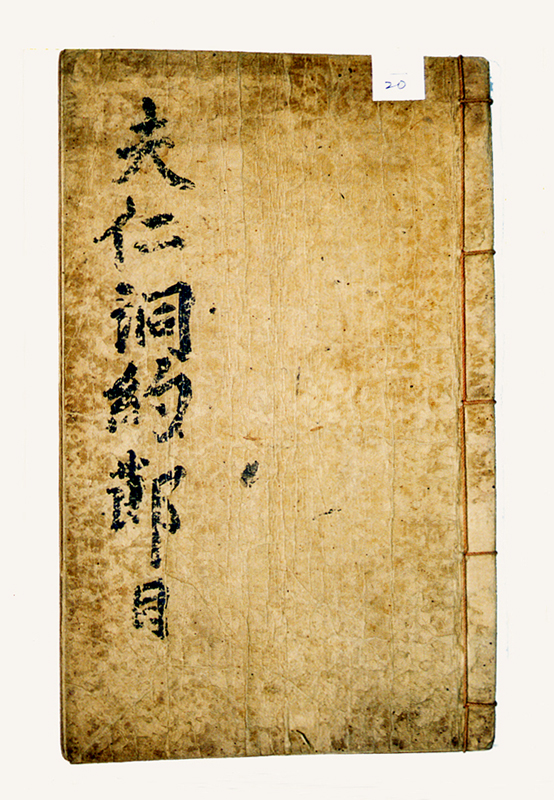 20
夫仁洞約節目